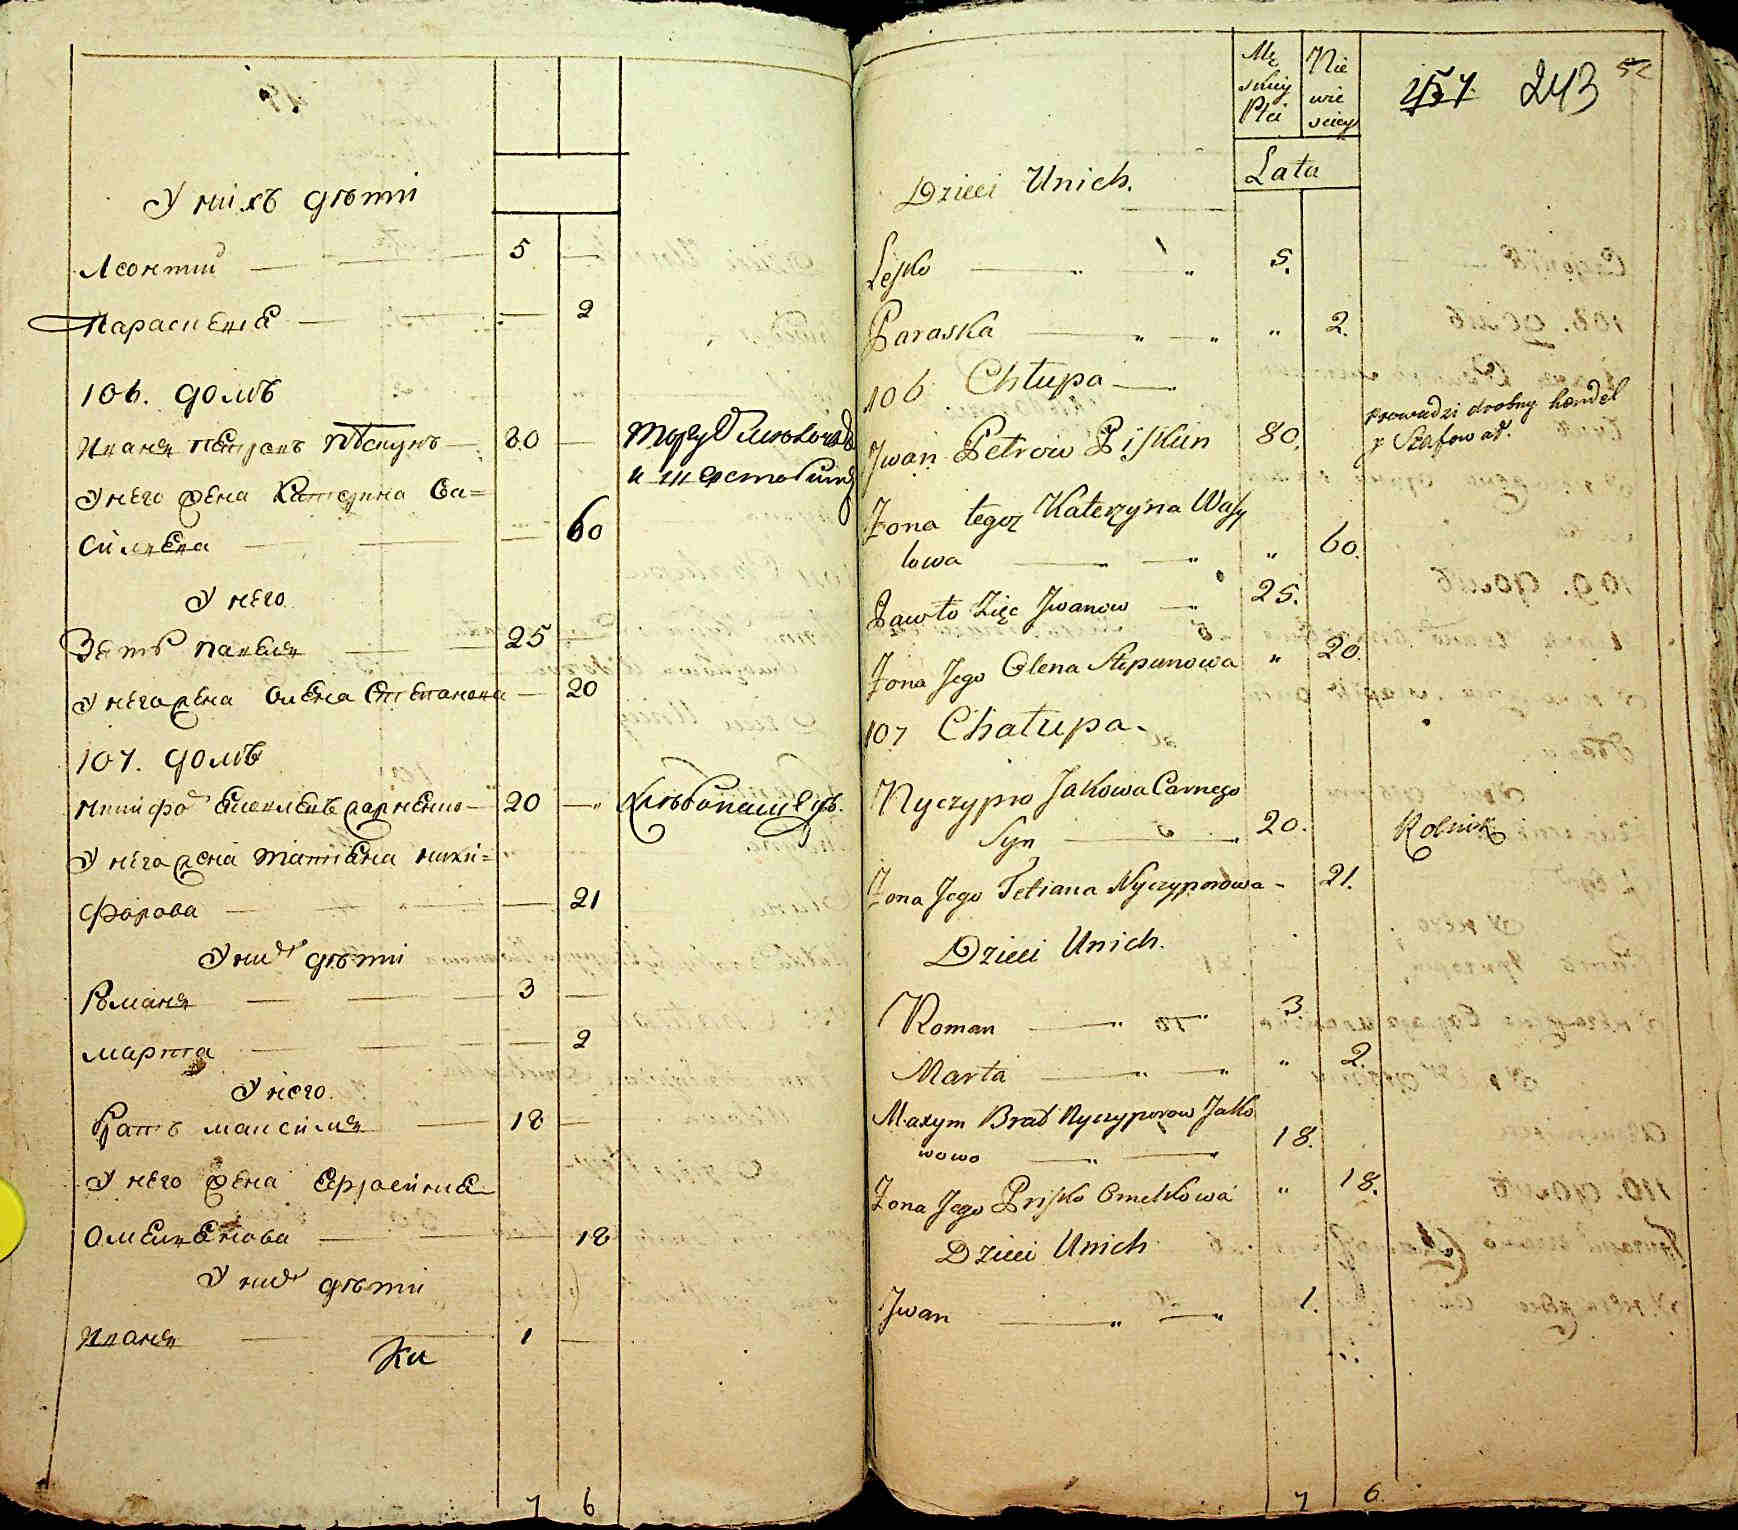 У нихъ дѣти
Леонтий 5
Параскевия 2
106. домъ
Иванъ Петровъ Пѣскунъ 80
У него жена Катерина Ва=
силиева 60
У него
Зять Павелъ 25
У него жена Олена Степанова 20
107. домъ
20 хлѣбопашецъ.
У него жена Татиана Ники=
форова 21
У них дѣти
Романъ 3
Марта 2
У него.
Братъ Максимъ 18
У него жена
Омелкова 18
У них дѣти
Иванъ 1
7 6
Mę skiey Płci
Nie wie sciey
Lata
257 243 52
Dzieci Unich.
Lesko 5.
Paraska " 2.
106 Chłupa
Jwan Petrow Piskun 80.
prowadzi drobny handel
z
Żona tegoż Katerzyna Wasy
lowa " 60.
Pawło Zięc Jwanow 25.
Żona Jego Olena Stepanowa " 20.
107 Chałupa.
Nyczypro Jakowa Carnego
Syn 20. Rolnik
Żona Jego Tetiana Nyczyporowa - 21.
Dzieci Unich.
Roman 3
Marta " 2.
Maxym Brat Nyczyporow Jako
wowo 18.
Żona Jego Prisko Omelkowa " 18.
Dzieci Unich
Jwan 1.
7 6